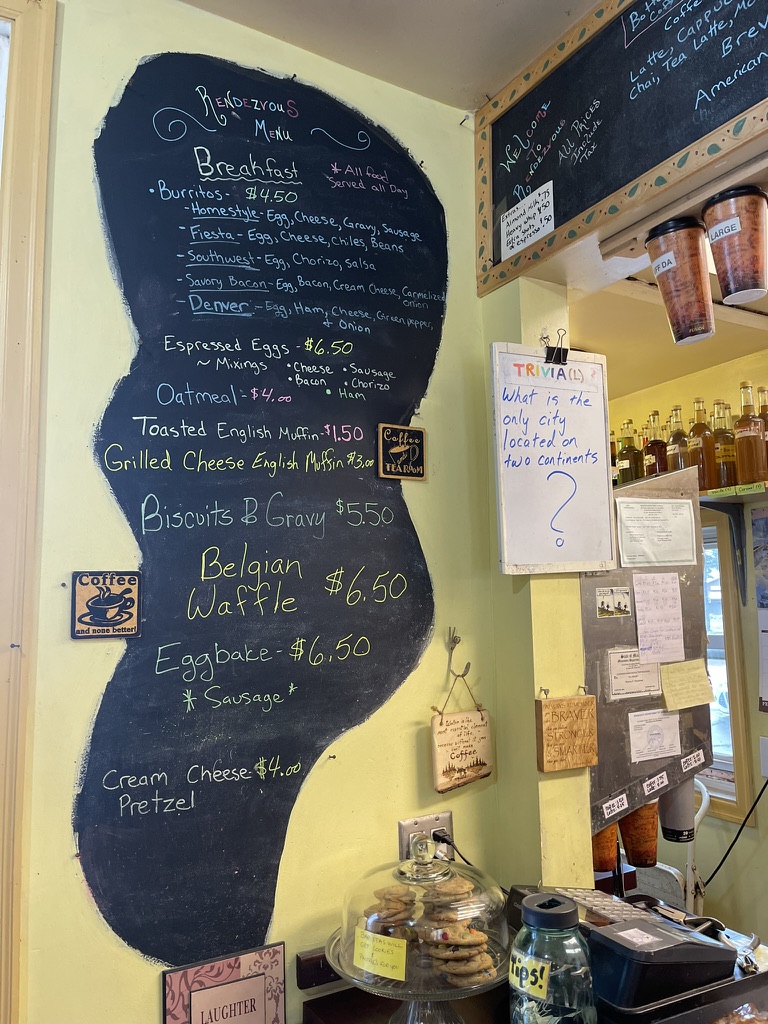 RENDEZVOUS
MENU
Breakfast
* All food
Served all Day
• Burritos - $4.50
- Homestyle - Egg, Cheese, Gravy, Sausage
- Fiesta - Egg, Cheese, Chiles, Beans
- Southwest - Egg, Chorizo, Salsa
- Savory Bacon - Egg, Bacon, Cream Cheese, Carmelized
onion
- Denver - Egg, Ham, Cheese, Green pepper,
& Onion
Espressed Eggs - $6.50
~ Mixings • Cheese • Sausage
• Bacon • Chorizo
• Ham
Oatmeal - $4.00
Toasted English Muffin - $1.50
Grilled Cheese English Muffin $3.00
Biscuits & Gravy $5.50
Belgian
Waffle $6.50
Eggbake - $6.50
* Sausage *
Cream Cheese - $4.00
Pretzel
Coffee
TEA ROOM
Coffee
and none better!
WELCOME
To
Rendezvous
All Prices
Include
Tax
Coffee
Latte, Cappu
Chai, Tea Latte, Mo
Brev
American
Extras:
Almond Milk $.75
Heavy Whip $.50
LARGE
TRIVIA(L)?
What is the
only city
located on
two continents
?
Coffee
BRAVER
STRONGER
SMARTER
Tips!
LAUGHTER